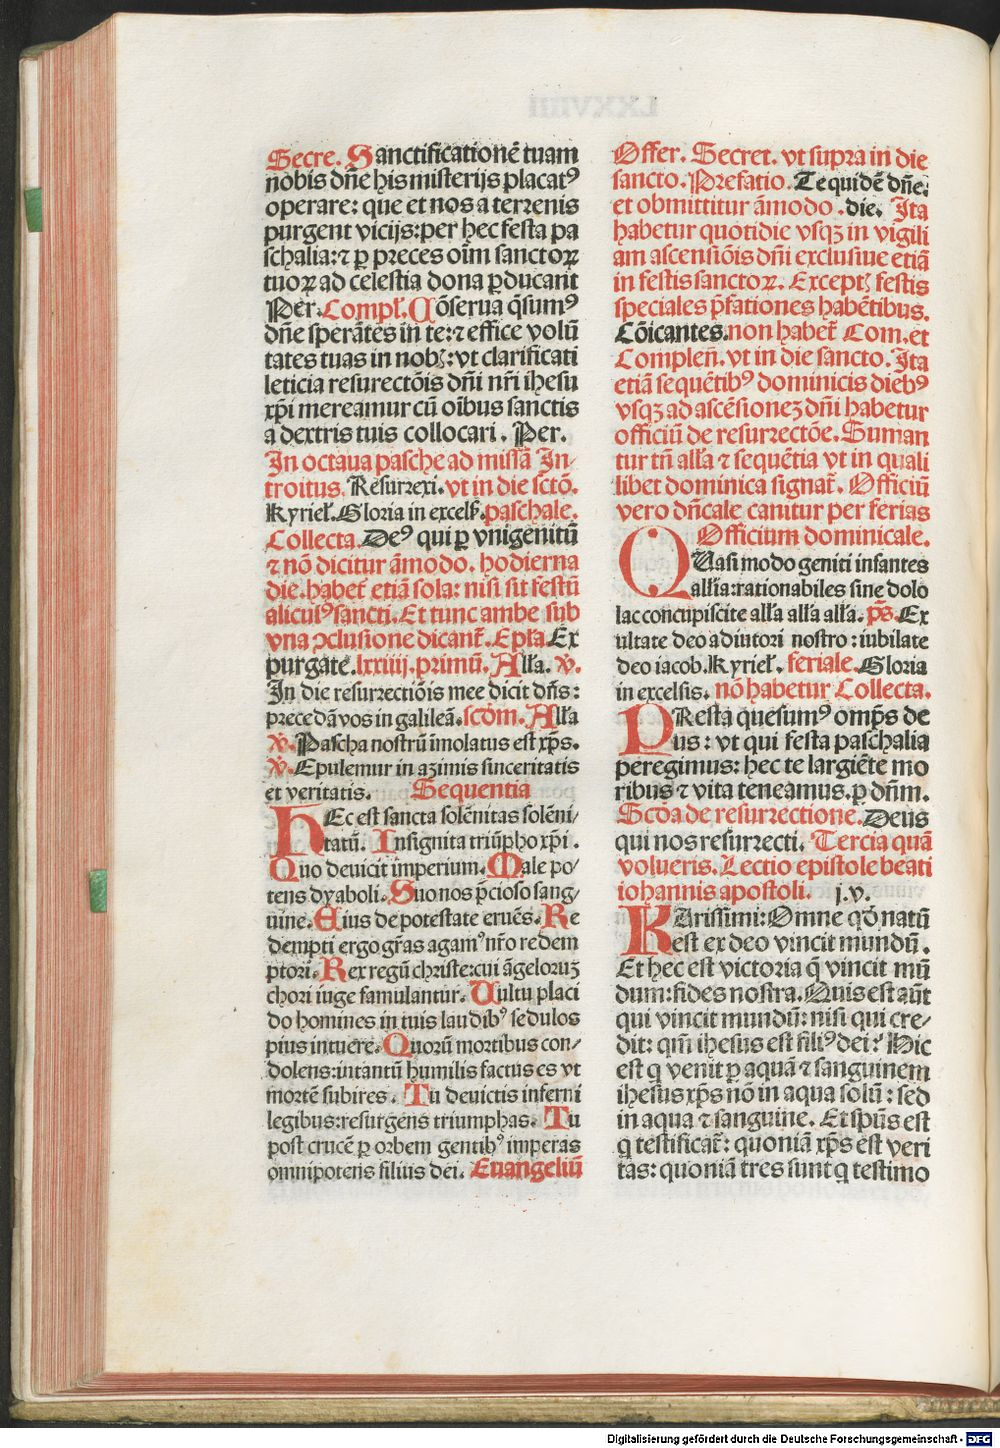 Secre. Sanctificationē tuam
nobis dn̄e his misterijs placatꝰ
operare: que et nos a terrenis
purgent vicijs: per hec festa pa
schalia: ⁊ ꝑ preces oīm sanctoꝝ
tuoꝝ ad celestia dona ꝑducant
Per. Compl̕. Cōserua q̄sumꝰ
dn̄e sperātes in te: ⁊ effice volū
tates tuas in nobꝫ: vt clarificati
leticia resurectōis dn̄i nr̄i ihesu
xp̄i mereamur cū oībus sanctis
a dextris tuis collocari. Per.
In octaua pasche ad missā In⸗
troitus. Resurrexi. vt in die sctō.
Kyriel̕. Gloria in excels̕. paschale.
Collecta. Deꝰ qui ꝑ vnigenitū
⁊ nō dicitur āmodo. hodierna
die. habet̄ etiā sola: nisi sit festū
aliculꝰ sancti. Et tunc ambe sub
vna ↄclusione dicant̄. Ep̄la. Ex
purgate. lxxiiij. primū. Alla. ℣.
In die resurrectiōis mee dicit dn̄s:
precedā vos in galileā. scōm. All̄a
℣. Pascha nostrū īmolatus est xp̄s.
℣. Epulemur in azimis sinceritatis
et veritatis. Sequentia
HEc est sancta solēnitas solēni⸗
tatū. Insignita triūpho xp̄i.
Quo deuicit imperium. Male po⸗
tens dyaboli. Suo nos p̄cioso sang⸗
uine. Eius de potestate eruēs. Re
dempti ergo gr̄as agamꝰ nr̄o redem
ptori. Rex regū christe: cui āgelorūꝫ
chori iuge famulantur. Uultu placi
do homines in tuis laudibꝰ sedulos
pius intuere. Quorū mortibus con⸗
dolens: intantū humilis factus es vt
mortē subires. Tu deuictis inferni
legibus: resurgens triumphas. Tu
post crucē ꝑ orbem gentibꝰ imperas
omnipotens filius dei. Euangeliū
Offer. Secret. vt supra in die
sancto. Prefatio. Te quidē dn̄e.
et obmittitur āmodo. die. Ita
habetur quotidie vsqꝫ in vigili
am ascensiōis dn̄i exclusiue etiā
in festis sanctoꝝ. Exceptꝫ festis
speciales p̄fationes habētibus.
Cōicantes. non habet̄ Com. et
Complen̄. vt in die sancto. Ita
etiā sequētibꝰ dominicis diebꝰ
vsqꝫ ad ascēsionēꝫ dn̄i habetur
officiū de resurrectōe. Suman
tur tn̄ all̄a ⁊ sequētia vt in quali
libet dominica signat̄. Officiū
vero dn̄cale canitur per ferias
Officium dominicale.
QUasi modo geniti infantes
all̄ia: rationabiles sine dolo
lac concupiscite all̄a all̄a all̄a. ps̄. Ex
ultate deo adiutori nostro: iubilate
deo iacob. Kyriel̕. feriale. Gloria
in excelsis. nō habetur Collecta.
PResta quesumꝰ omp̄s de
us: vt qui festa paschalia
peregimus: hec te largiēte mo
ribus ⁊ vita teneamus. ꝑ dn̄m.
Scōa de resurrectione. Deus
qui nos resurrecti. Tercia quā
volueris. Lectio epistole beati
iohannis apostoli. j. v.
KArissimi: Omne qd̄ natū
est ex deo vincit mundū.
Et hec est victoria q̄ vincit mū
dum: fides nostra. Quis est aūt
qui vincit mundū: nisi qui cre⸗
dit: qm̄ ihesus est filiꝰ dei? Hic
est q̄ venit ꝑ aquā ⁊ sanguinem
ihesus xp̄s nō in aqua solū: sed
in aqua ⁊ sanguine. Et sp̄us est
q̄ testificat̄: quoniā xp̄s est veri
tas: quoniā tres sunt q̄ testimo
Digitalisierung gefördert durch die Deutsche Forschungsgemeinschaft - DFG